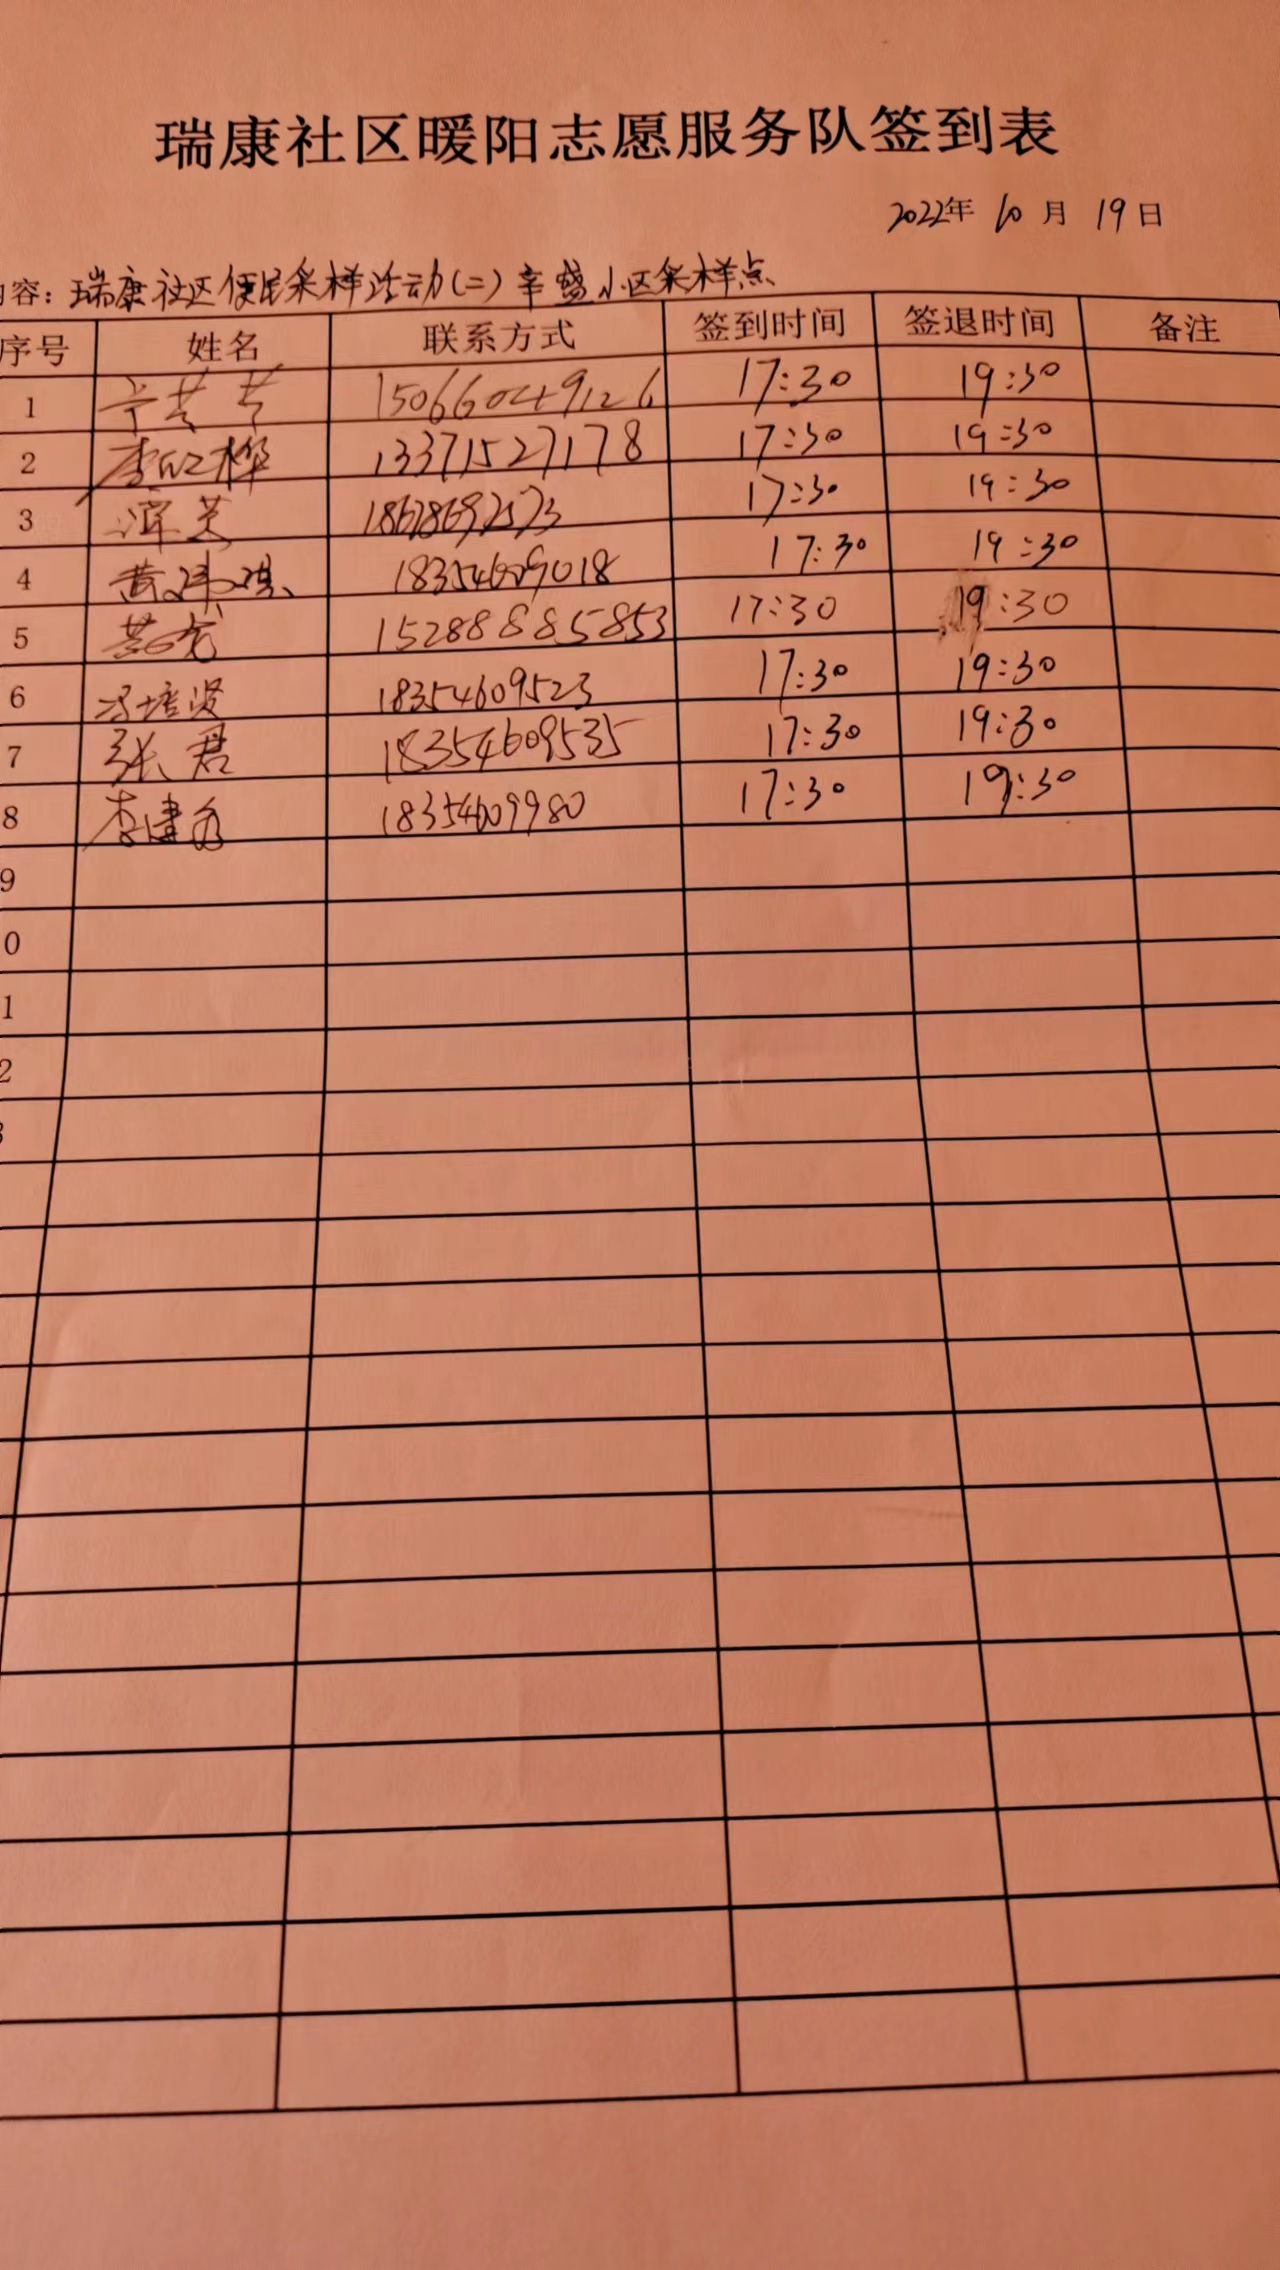 瑞康社区暖阳志愿服务队签到表
2022年 10 月 19 日
容：瑞康社区便民采样活动(二)辛盛小区采样点
序号 姓名 联系方式 签到时间 签退时间 备注
1 15066049126 17:30 19:30
2 李 桦 13371527178 17:30 19:30
3 18678692573 17:30 19:30
4 黄 18354609018 17:30 19:30
5 15288885853 17:30 19:30
6 冯培贤 18354609523 17:30 19:30
7 张君 18354609535 17:30 19:30
8 李建 18354609980 17:30 19:30
9
0
1
2
3